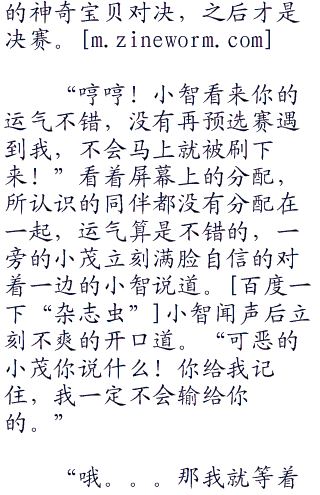 的神奇宝贝对决，之后才是
决赛。[m.zineworm.com]
“哼哼！小智看来你的
运气不错，没有再预选赛遇
到我，不会马上就被刷下
来！”看着屏幕上的分配，
所认识的同伴都没有分配在
一起，运气算是不错的，一
旁的小茂立刻满脸自信的对
着一边的小智说道。[百度一
下“杂志虫”]小智闻声后立
刻不爽的开口道。“可恶的
小茂你说什么！你给我记
住，我一定不会输给你
的。”
“哦。。。那我就等着